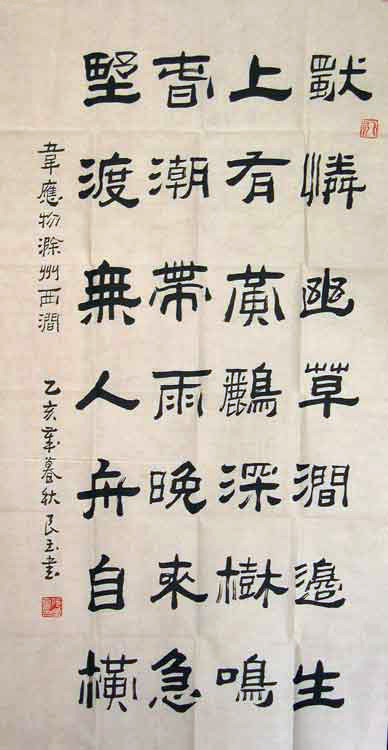 獨憐幽草澗邊生
上有黃鸝深樹鳴
春潮帶雨晚來急
野渡無人舟自橫
韋應物滁州西澗 乙亥歲暮秋良玉書